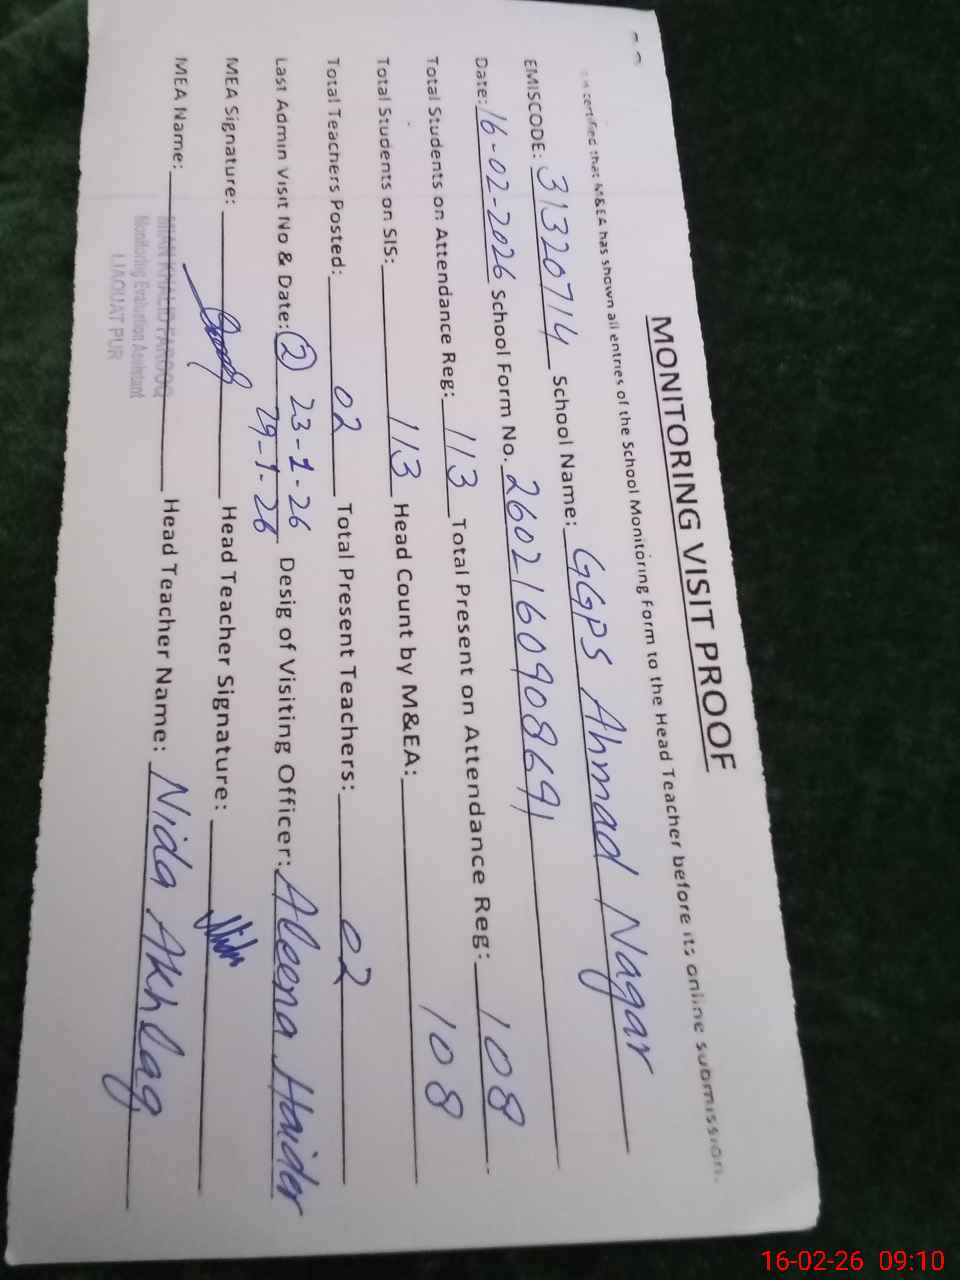 MONITORING VISIT PROOF
certified that M&EA has shown all entries of the School Monitoring Form to the Head Teacher before its online submission.
EMISCODE: 31320714 School Name: GGPS Ahmad Nagar
Date: 16-02-2026 School Form No. 2602160908691
Total Students on Attendance Reg: 113 Total Present on Attendance Reg: 108
Total Students on SIS: 113 Head Count by M&EA: 108
Total Teachers Posted: 02 Total Present Teachers: 02
Last Admin Visit No & Date: (2) 23-1-26 Desig of Visiting Officer: Aleena Haider
29-1-26
MEA Signature: Head Teacher Signature:
MEA Name: MIAN KHALID FAROOQ Head Teacher Name: Nida Akhlaq
Monitoring Evaluation Assistant
LIAQUAT PUR
16-02-26 09:10